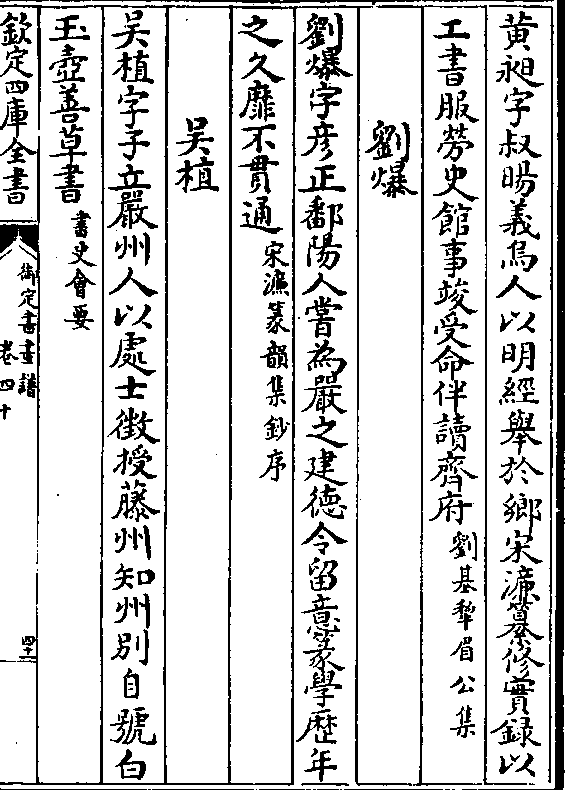 黄昶字叔暘義烏人以明經舉於鄉宋濂纂修實録以
工書服勞史館事竣受命伴讀齊府劉基犂眉公集
劉爆
劉爆字彦正鄱陽人嘗為嚴之建德令留意篆學歴年
之久靡不貫通宋濂篆韻集鈔序
吴植
吴植字子立嚴州人以處士徴授藤州知州别自號白
玉壺善草書書史會要
欽定四庫全書
御定書畫譜
卷四十
四十一